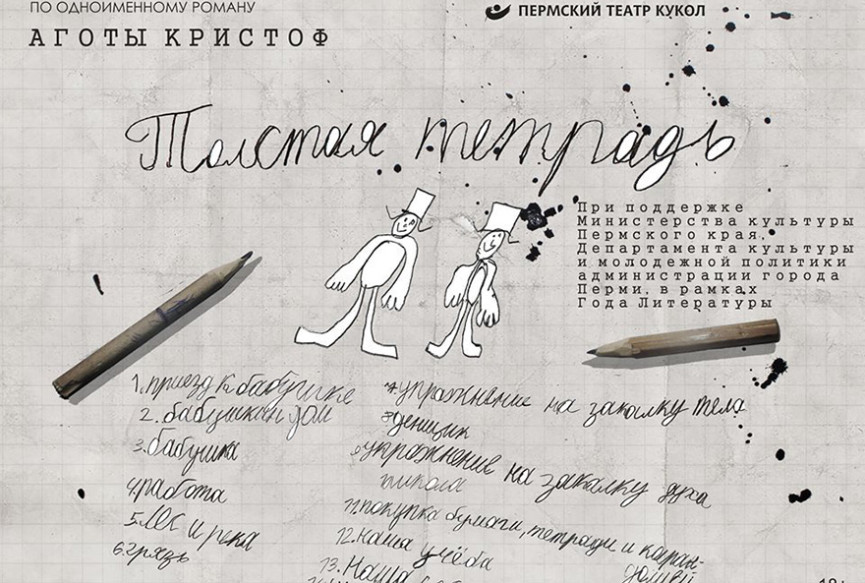 ПО ОДНОИМЕННОМУ РОМАНУ
АГОТЫ КРИСТОФ
ПЕРМСКИЙ ТЕАТР КУКОЛ
Толстая тетрадь
При поддержке
Министерства культуры
Пермского края,
Департамента культуры
и молодежной политики
администрации города
Перми, в рамках
Года Литературы
1. приезд к бабушке
2. бабушкин дом
3. бабушка
4. работа
5. Лес и река
6. грязь
упражнение на закалку тела
денщик
упражнение на закалку духа
11. покупка бумаги, тетради и каран-
дашей
12. наша учёба
13. Наша